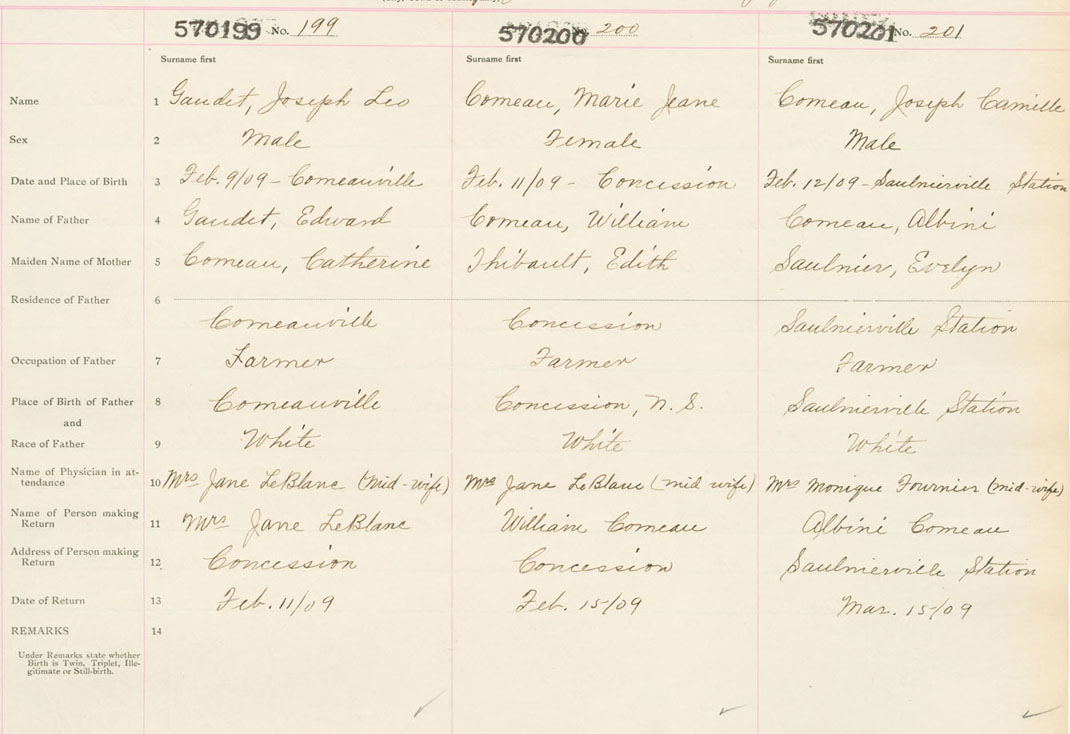 570199 No. 199 570200 No. 200 570201 No. 201
Surname first Surname first Surname first
Name 1 Gaudet, Joseph Leo Comeau, Marie Jeane Comeau, Joseph Camille
Sex 2 Male Female Male
Date and Place of Birth 3 Feb. 9/09 - Comeauville Feb. 11/09 - Concession Feb. 12/09 - Saulnierville Station
Name of Father 4 Gaudet, Edward Comeau, William Comeau, Albini
Maiden Name of Mother 5 Comeau, Catherine Thibault, Edith Saulnier, Evelyn
Residence of Father 6
Comeauville Concession Saulnierville Station
Occupation of Father 7 Farmer Farmer Farmer
Place of Birth of Father 8 Comeauville Concession, N. S. Saulnierville Station
and
Race of Father 9 White White White
Name of Physician in at-
tendance 10 Mrs Jane LeBlanc (mid-wife) Mrs Jane LeBlanc (mid wife) Mrs Monique Fournier (mid-wife)
Name of Person making
Return 11 Mrs Jane LeBlanc William Comeau Albini Comeau
Address of Person making
Return 12 Concession Concession Saulnierville Station
Date of Return 13 Feb. 11/09 Feb. 15/09 Mar. 15/09
REMARKS 14
Under Remarks state whether
Birth is Twin, Triplet, Ille-
gitimate or Still-birth.